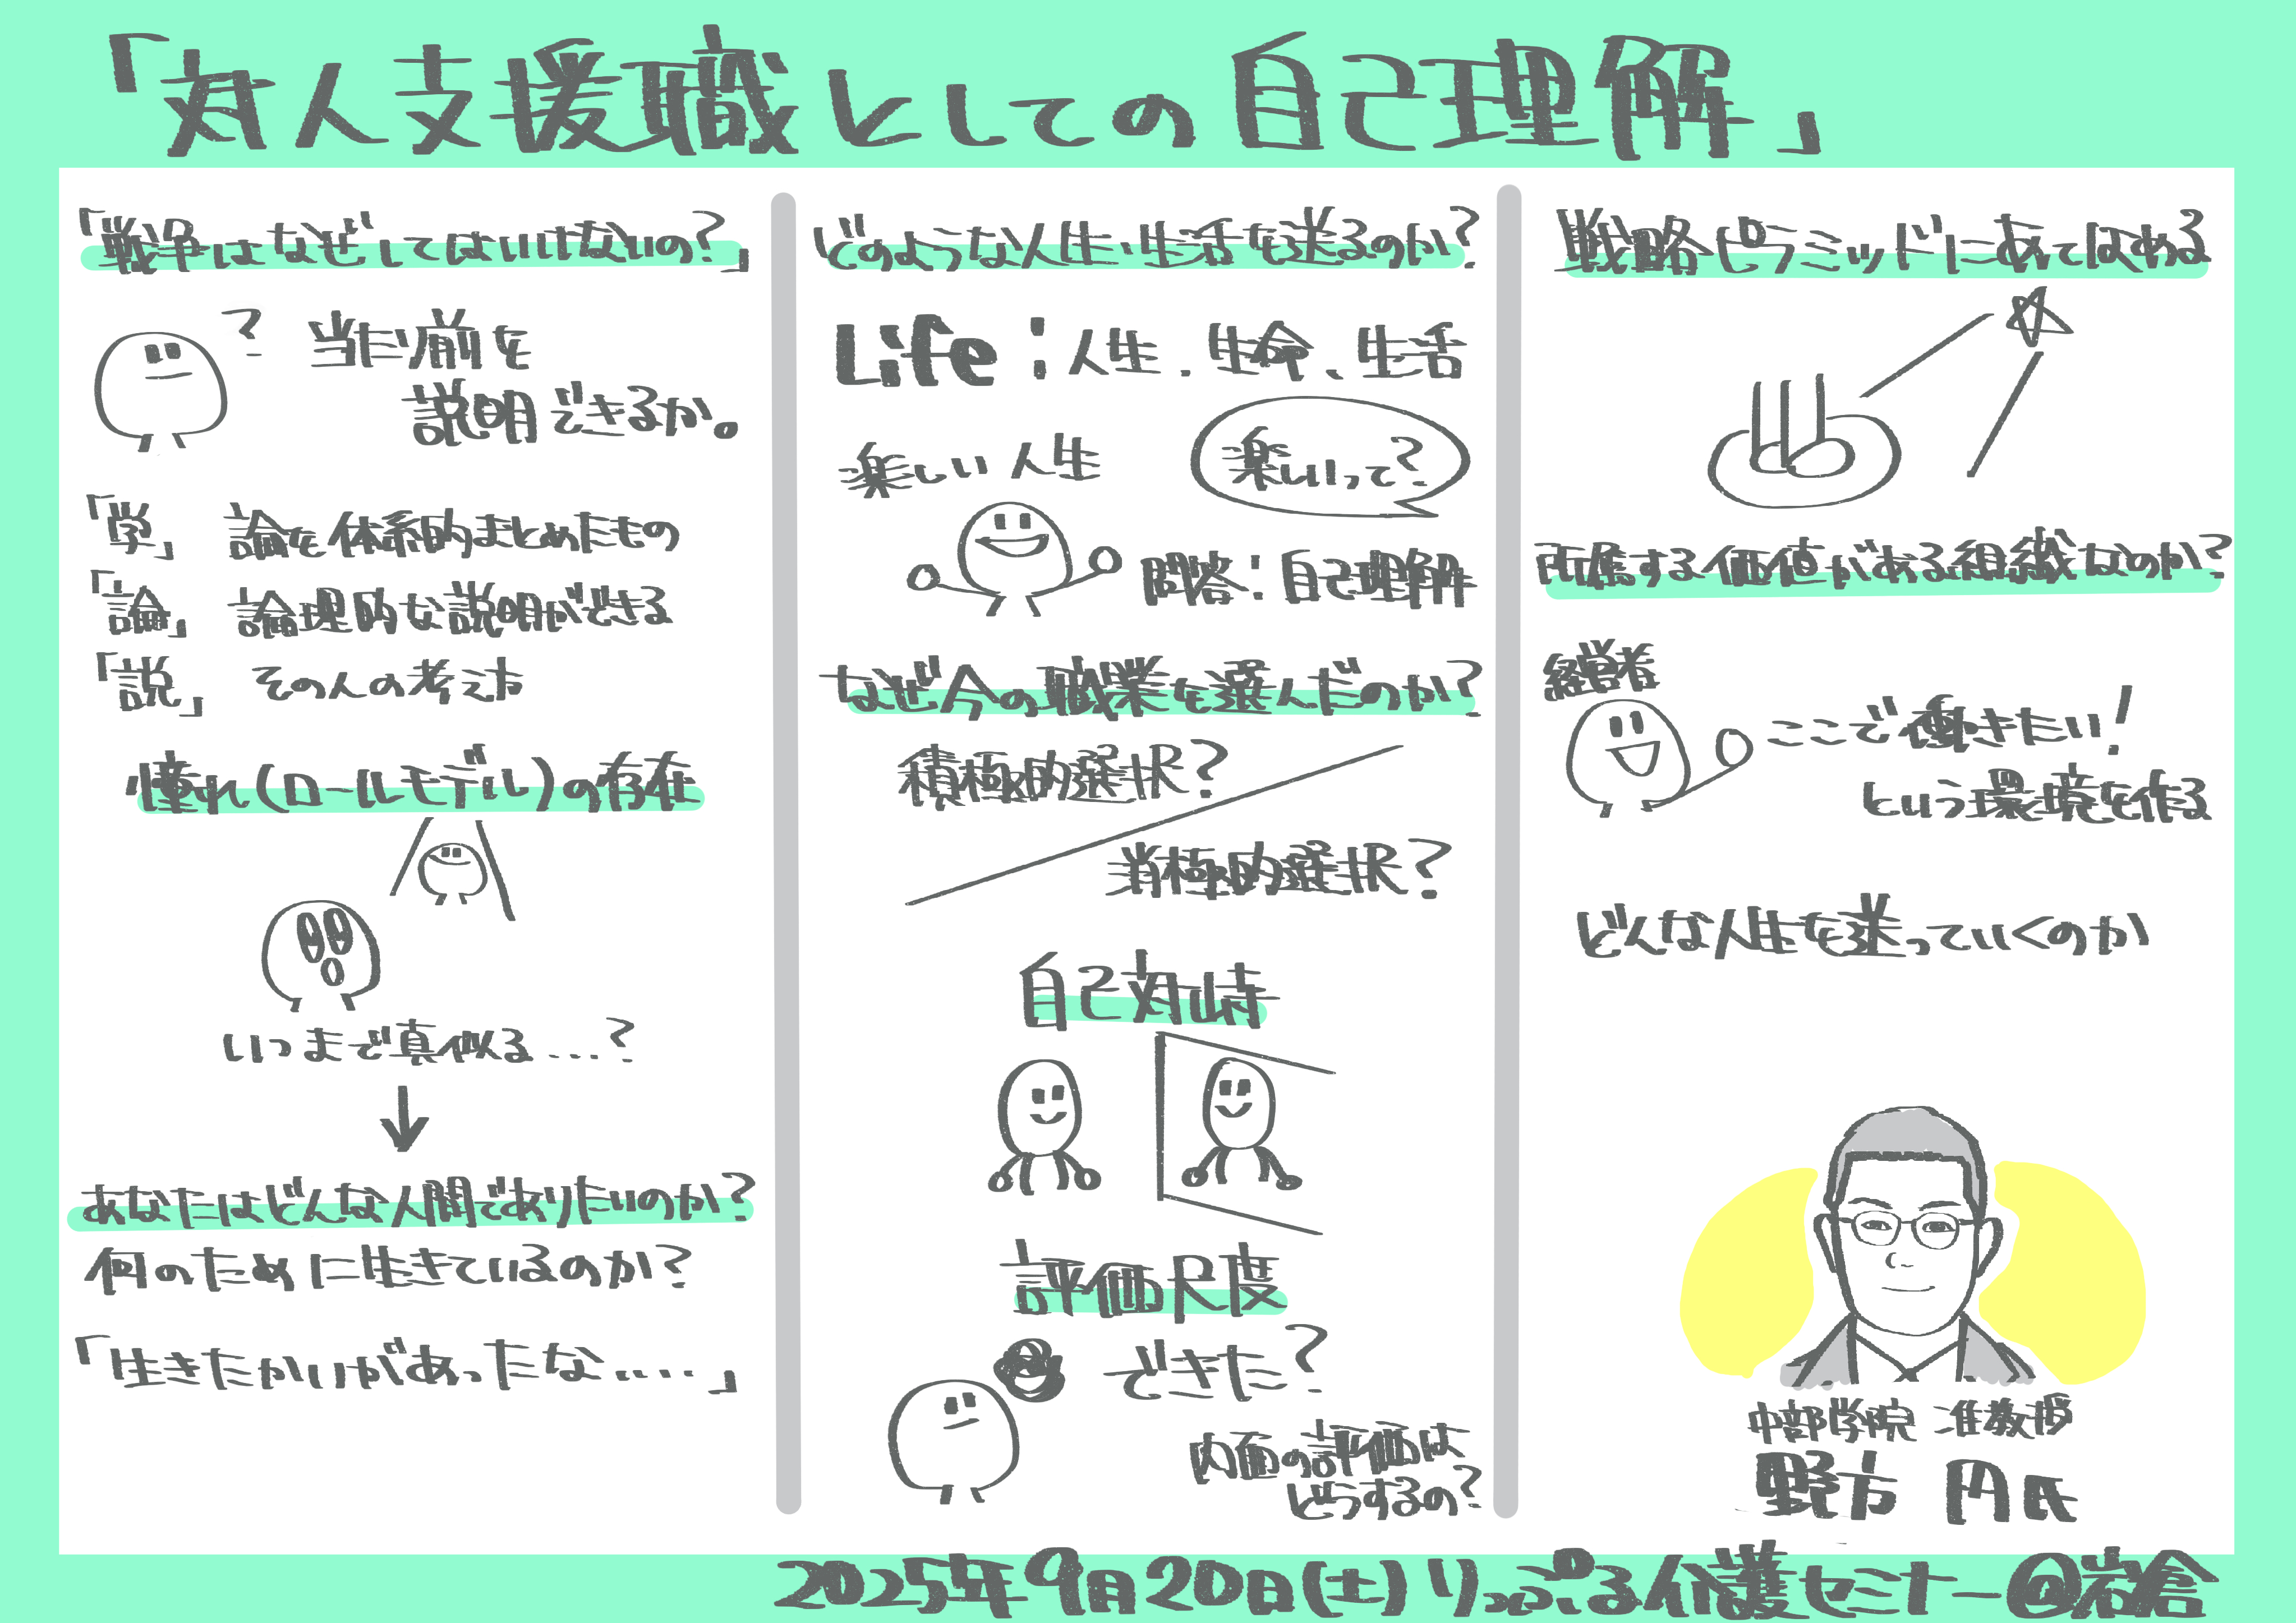 「対人支援職としての自己理解」
「戦争はなぜしてはいけないの?」
?
当たり前を
説明できるか。
「学」 論を体系的まとめたもの
「論」 論理的な説明ができる
「説」 その人の考え方
憧れ(ロールモデル)の存在
いつまで真似る…?
↓
あなたはどんな人間でありたいのか?
何のために生きているのか?
「生きたかいがあったな……」
どのような人生・生活を送るのか?
Life:人生、生命、生活
楽しい人生
楽しいって?
問答:自己理解
なぜ今の職業を選んだのか?
積極的選択?
消極的選択?
自己対峙
評価尺度
できた?
内面の評価は
どうするの?
戦略ピラミッドにあてはめる
所属する価値がある組織なのか?
経営者
ここで働きたい!
という環境を作る
どんな人生を送っていくのか
中部学院 准教授
野方 円氏
2025年9月20日(土)りっぷる介護セミナー@岩倉